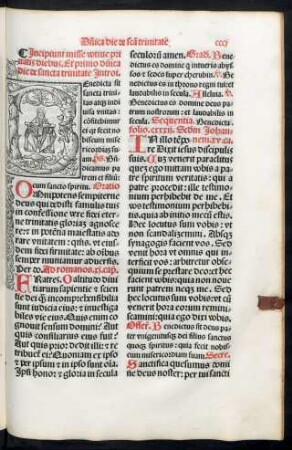 Dñica die de scã trinitate
ccc
Incipiunt misse votive pri
Et primo dñica
die de sancta trinitate Introi.
Enedicta sit
sancta trini
tas atqz indi
visa unitas
confitebimur
ei qz fecit
nobiscum mise
ricordiam su
am. ps. Be
nedicamus pa
trem et filium
cum sancto spiritu. Oratio
Omnipotens sempiterne
deus qui dedisti famulis
tuis in confessione vere fidei eter
ne trinitatis gloriaz agnosce
re: et in potentia maiestatis ado
rare unitatem: qs ut eius
dem fidei firmitate: ab oibus
semper muniamur adversis.
Per do. Ad romanos. xi. cap.
Fratres. O altitudo di
vitiarum sapientie & scien
tie dei: incomprehensibilia
sunt iudicia eius: & investiga
biles vie eius. Quis enim co
gnovit sensum domini? Aut
quis consiliarius eius fuit?
Aut quis prior dedit illi: & re
tribuet ei? Quoniam ex ipso
& per ipsum & in ipso sunt oĩa
Ipsi honor & gloria in secula
seculorũ amen. Grad. Be
nedictus es domine q intueris abys
sos & sedes super cherubin. V.
Benedictus es in throno regni tui: et
laudabilis in secula. Alleluia. V.
Benedictus es domine deus pa
trum nostrorum: et laudabilis in
secula. Sequentia. Benedicta
folio. cxxxii. Scdm Johan
nem. xv. ca.
In illo tẽpo
re: Dixit iesus discipulis
suis. Cuz venerit paraclitus
quez ego mittam vobis a pa
tre spiritum veritatis: qui a
patre procedit: ille testimo
nium perhibebit de me. Et
vos testimonium perhibebitis
quia ab initio mecũ estis.
Hec locutus sum vobis: ut
non scandalizemini. Absqz
synagogis facient vos. Sed
venit hora ut omnis qui
interficit vos: arbitretur ob
sequium se prestare deo: & hec
facient vobis quia non no
verunt patrem neqz me. Sed
hec locutus sum vobis: ut cũ
venerit hora eorum: remini
scamini: quia ego dixi vobis.
Offert. Benedictus sit deus pa
ter unigenitusqz dei filius sanctus
quoqz spiritus: quia fecit nobis
cum misericordiam suam. Secre.
Sanctifica quesumus domi
ne deus noster: per tui sancti